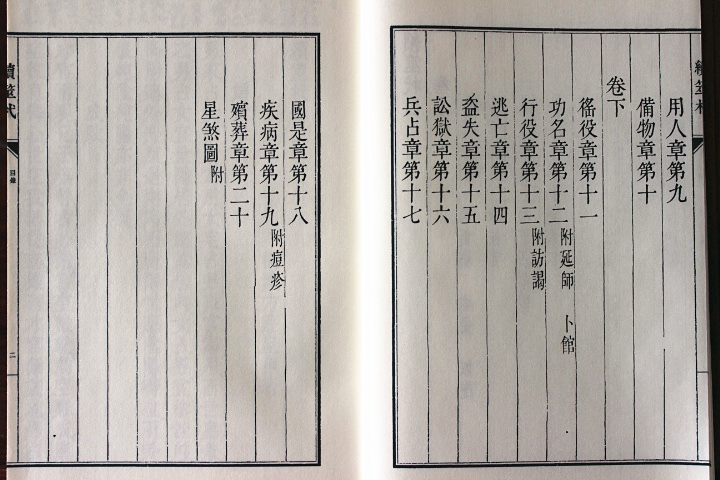 用人章第九
備物章第十
卷下
徭役章第十一
功名章第十二 附延師 卜館
行役章第十三 附訪謁
逃亡章第十四
盜失章第十五
訟獄章第十六
兵占章第十七
國是章第十八
疾病章第十九 附痘疹
殯葬章第二十
星煞圖 附
目錄
二